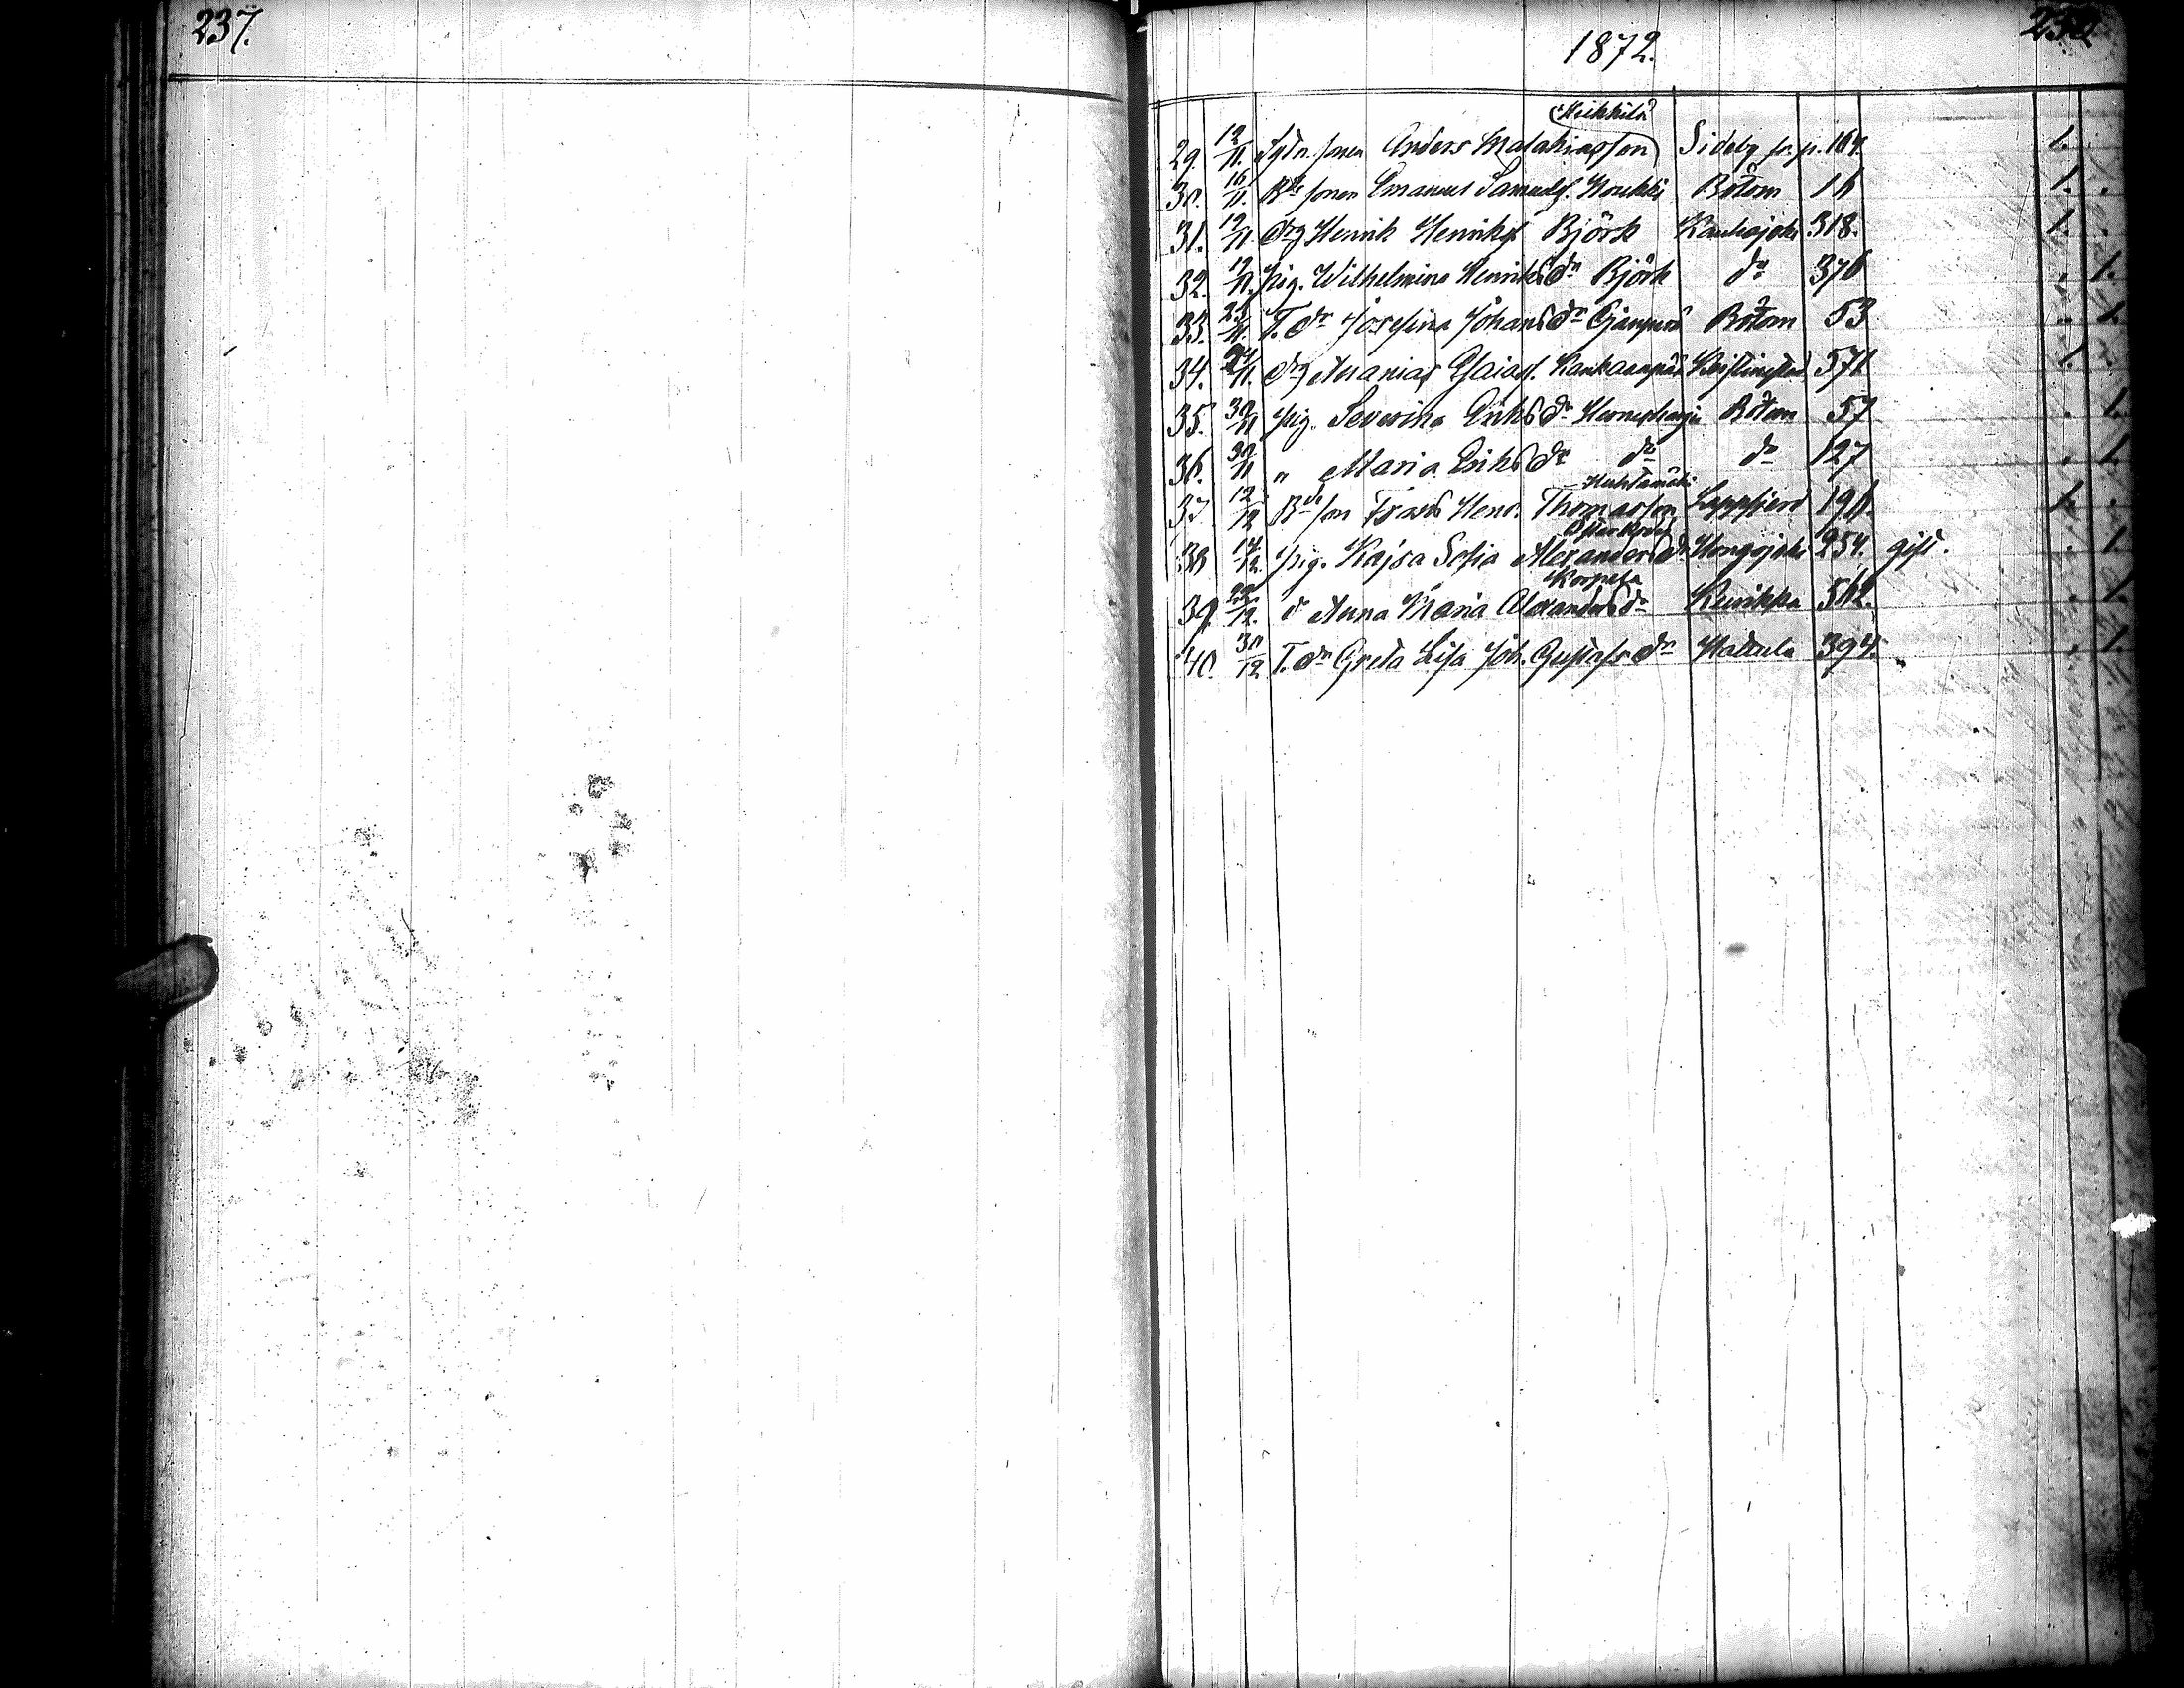 237.
1872.
29. 12/11. sonen Anders Malakiasson (Heikkilä) Sideby sn. p. 164. 1.
30. 16/11. Bde sonen Emanuel Samuels. Bötom 16 1. .
31. 19/11 drg Henrik Henriks. Björk Kauhajoki 318. 1. .
32. 19/11. pig. Wilhelmina Henriks dr Björk do 376 . 1.
33. 11. T. dr Josefina Johans dr Bötom 53 . 1.
34. 24/11. drg Ananias Esaias. Kankaanpää Kristinestad 571 1. .
35. 30/11 pig. Severina Eriks dr Bötom 57 . 1.
36. 30/11 " Maria Eriks dr do do 127 . 1.
37 12/12 Bde son Henr. Thomasson Huhtamäki Lappfjerd 196. 1. .
38 14/12. pig. Kajsa Sofia Alexanders dr Hongojoki 254. gift. . 1.
39. 12. d Anna Maria Alexanders dr Korpela Kurikka 562. . 1.
40. 30/12 T. dr Greta Lisa Joh. Gustafs dr Hattula 394. . 1.